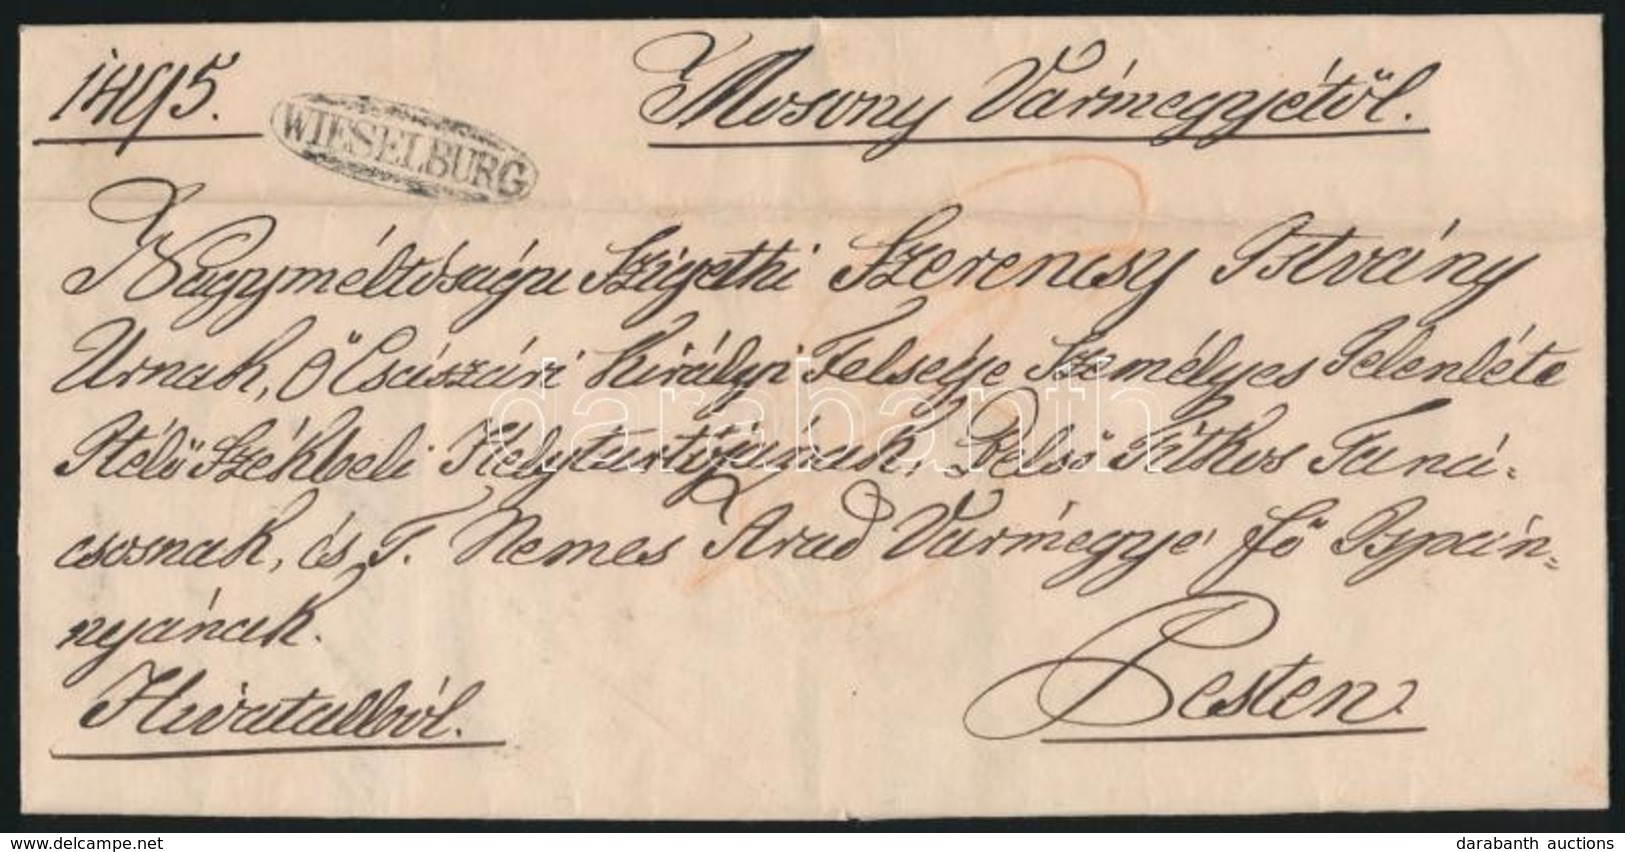 1495.
WIESELBURG
Mosony Vármegyétől.
Nagyméltóságu Szigethi Szerencsy Istvány
Urnak, Ő Császári Királyi Felsége Személyes Jelenléte
Itélő Székbeli Helytartójának, Belső Titkos Taná=
csosnak, és T. Nemes Arad Vármegye fő Ispán=
nyának.
Hivatalból.
Pesten.
darabanth
darabanth auctions